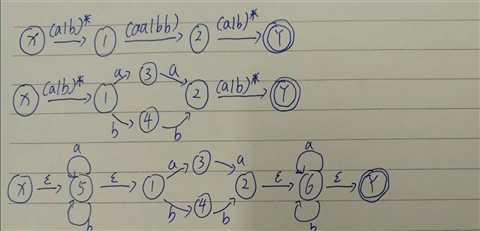 X (a|b)* 1 (aa|bb) 2 (a|b)* Y
a 3 a
X (a|b)* 1 2 (a|b)* Y
b 4 b
a a
X ε 5 ε 1 a 3 a 2 ε 6 ε Y
b 4 b
b b